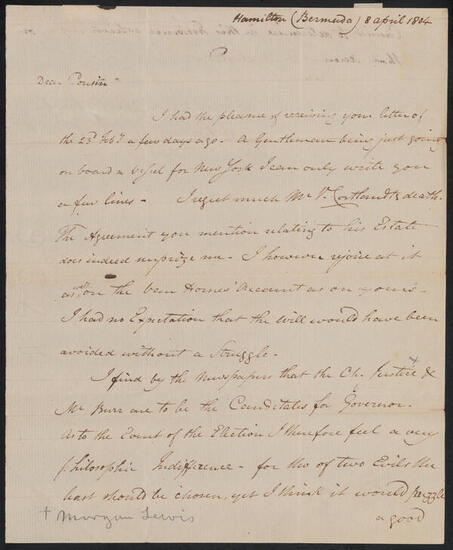 Hamilton (Bermuda) 8 april 1804
Dear Cousin
I had the pleasure of receiving your letter of
the 23d Feby a few days ago - A Gentleman being just going
on board a vessel for New York I can only write you
a few lines - I regret much Mr V. Cortlandts death.
The Agreement you mention relating to his Estate
does indeed surprize me - I however rejoice at it
as well on the Van Hornes' Account as on yours -
I had no Expectation that the will would have been
avoided without a Struggle.
I find by the Newspapers that the Ch. Justice + &
Mr Burr are to be the Candidates for Governor.
As to the Event of the Election I therefore feel a very
philosophic Indifference - for tho' of two Evils the
least should be chosen, yet I think it would puzzle
a good
+ Morgan Lewis